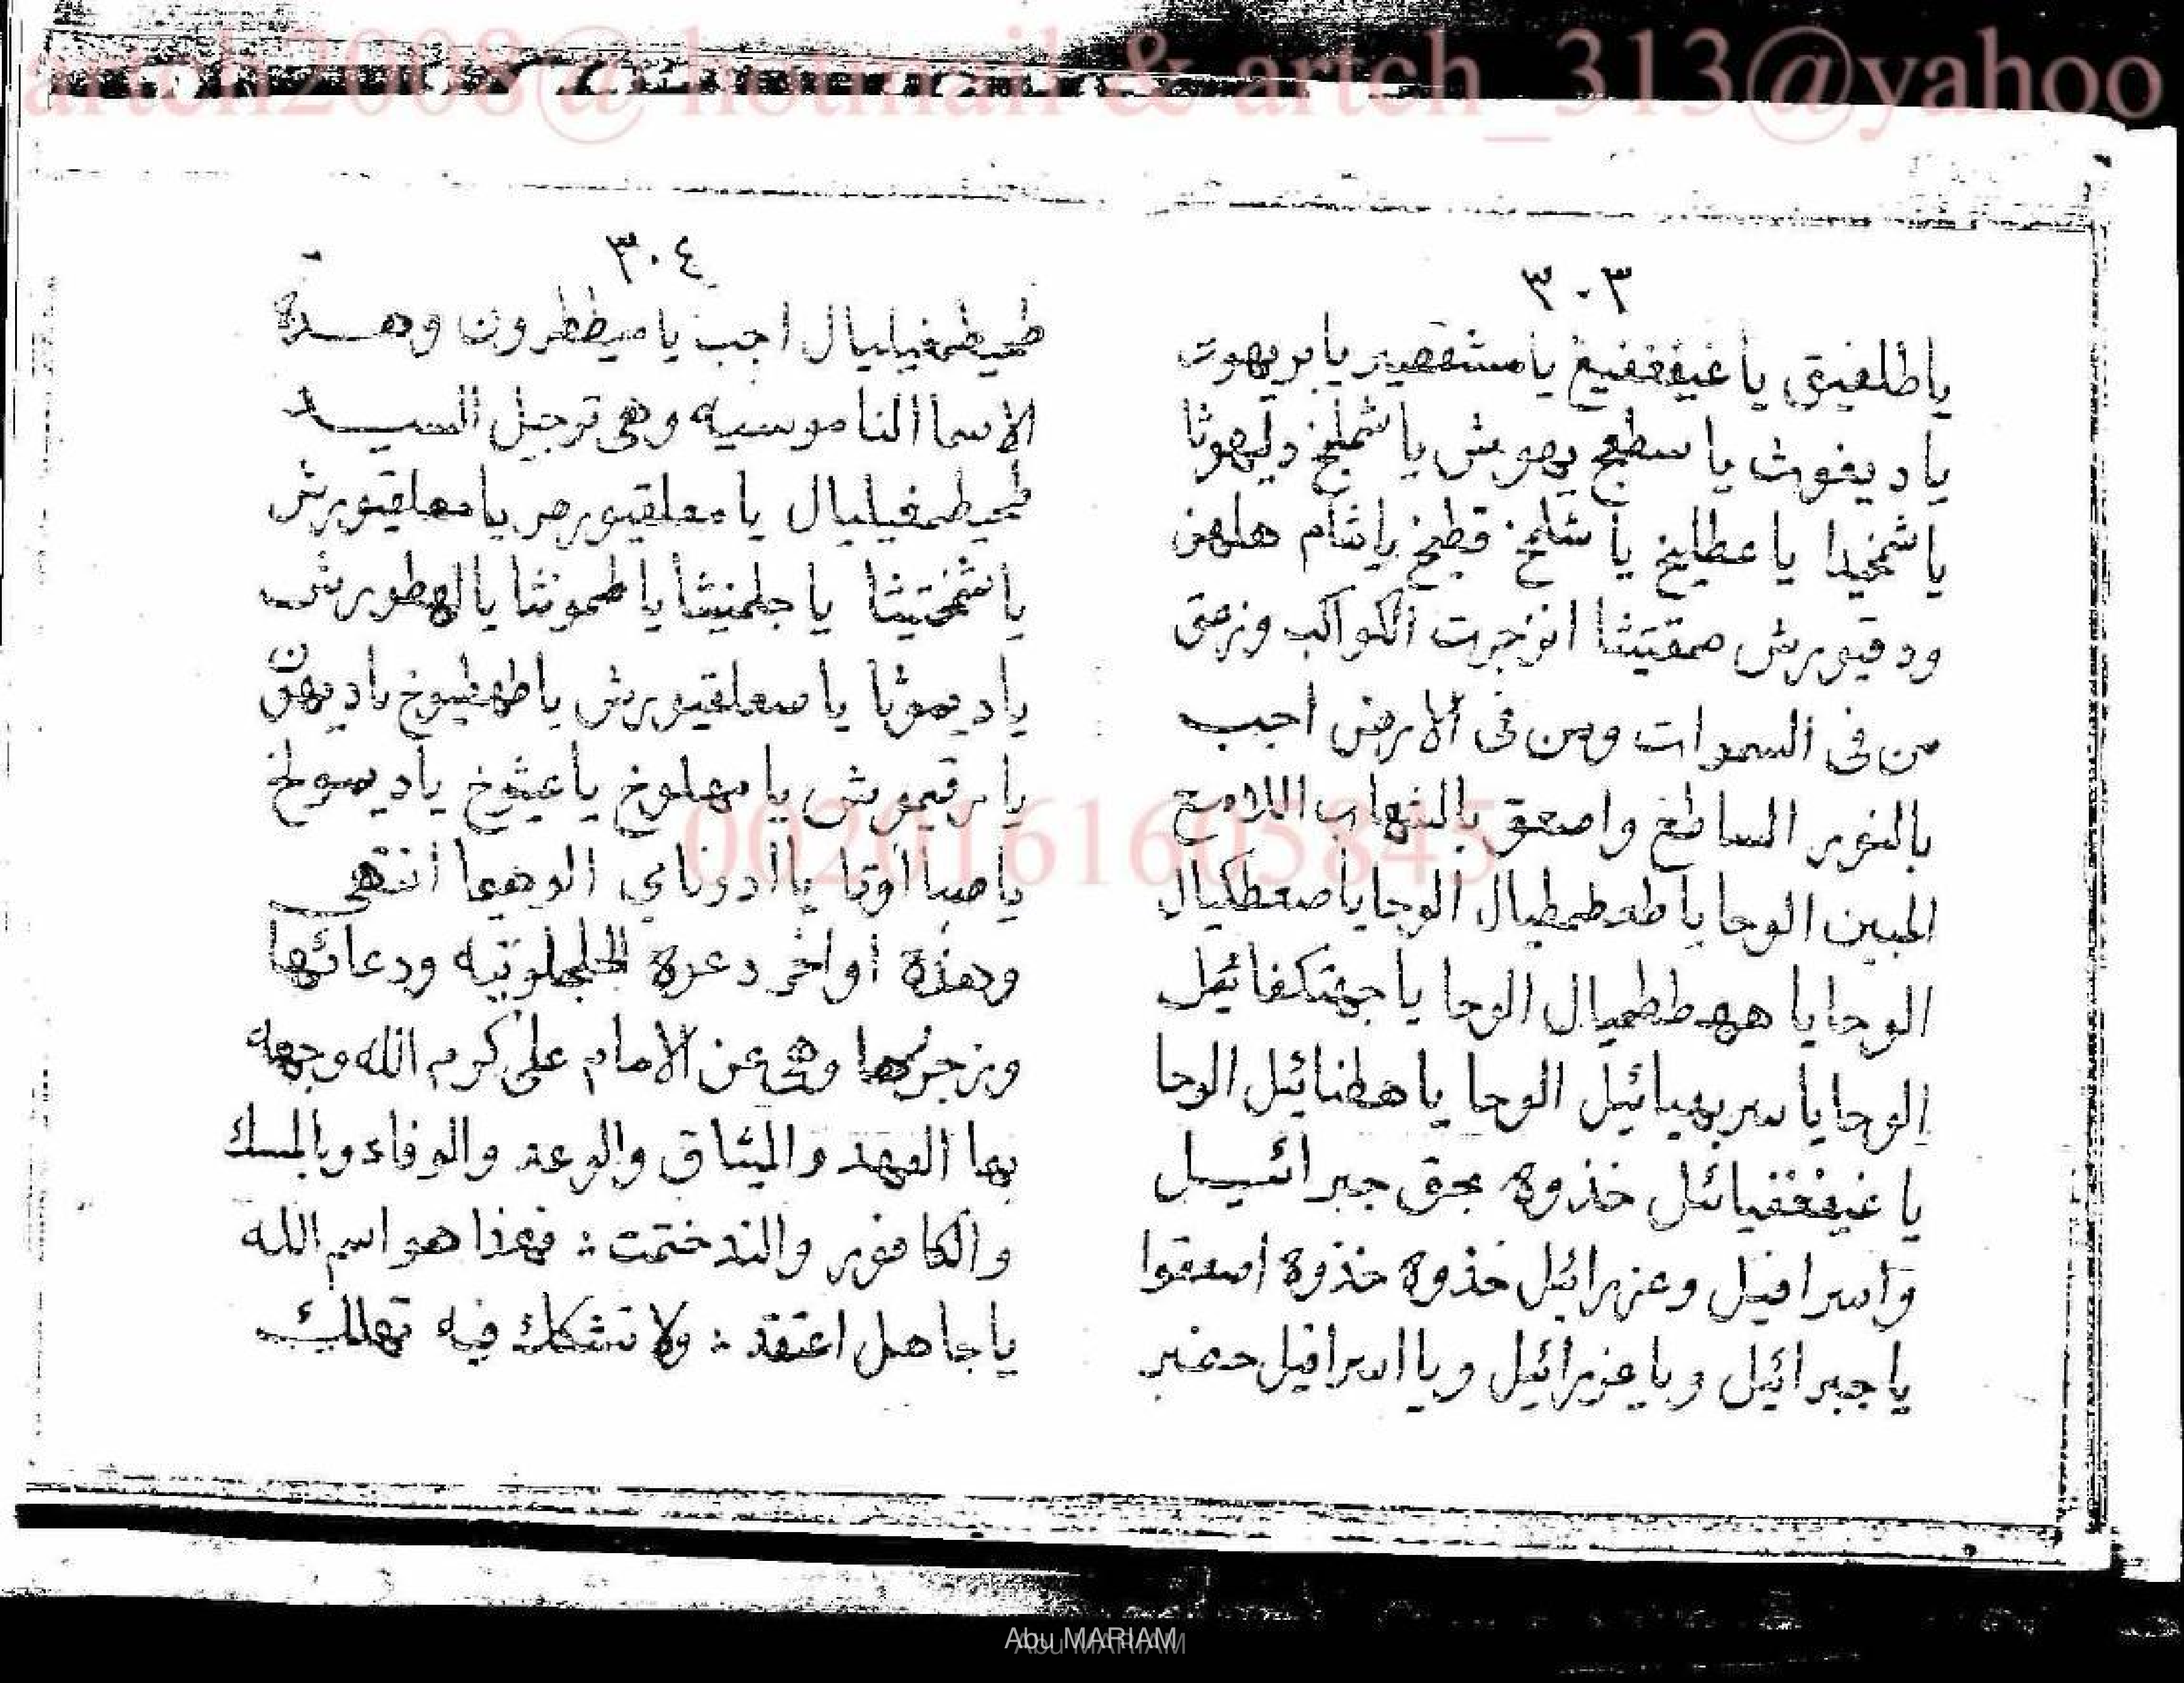 artch2008@ hotmail & artch_313@yahoo
٣٠٣
ياطلفيق ياغيففغيغ يامشقصير يابريهوت
ياديغوث ياسطيح يهوش ياشملخ دليهوثا
ياشمخيدا ياعطايخ ياشلخ قطيخ ياشام هلهز
ودقيورش صمقيتثا انزجرت الكواكب ونرعق
من فى السموات ومن فى الارض اجب
بالنور الساطع واصعق بالشهاب اللامع
المبين الوحا يا الوحا ياصعطكيال
الوحايا ههططميال الوحا يا جهتكفائيل
الوحايا سربهيائيل الوحا ياهطنائيل الوحا
يا غيففغيائل خذوه بحق جبرائيل
واسرافيل وعزرائيل خذوه خذوه اصعقوا
ياجبرائيل وياعزرائيل ويااسرافيل حضير
٣٠٤
طميطمغيليال اجب ياميططرون وهذة
الاسما الناموسيه وهى ترجيل السيد
طميطمغيليال يا معلقيورص يامعلقيورش
ياشمختيثا ياجلمنيثا ياطموثا يالهطورش
ياديموثا ياسعلقيورش ياطهطيوخ ياديهن
يارقيموش يامهلوخ ياعيثوخ ياديسولخ
ياصباأوتا ياادوناي الوهيما انتهى
وهذة أواخر دعوة الجلجلوتيه ودعائها
وزجرها وهى عن الامام على كرم الله وجهه
بها العهد والميثاق والوعد والوفاء وبالمسك
والكافور والند ختمت : فهذا هو اسم الله
ياجاهل اعتقد : ولا تشكك فيه تهلك
0020161605845
Abu MARIAM
Abu MARIAM